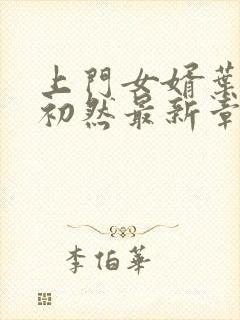 上門女婿葉
初然最新章
李伯華